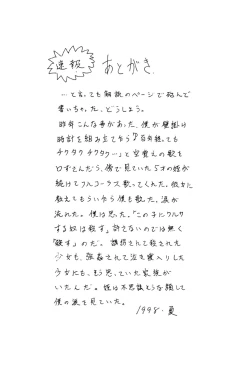 速報
あとがき.
…て言っても解説のページで拾んで
書いちゃった.どうしよう。
昨年こんな事があった.僕が壁掛け
時計を組み立て乍ら「♪百年経っても
チクタクチクタク…」と空覚えの歌を
口ずさんだら、傍で見ていた5才の姪が
続けてフルコーラス歌ってくれた。彼女に
教えてもらい乍ら僕も歌った。涙が
流れた。僕は思った。"この子にワルサ
する奴は殺す"許さないのでは無く
「殺す」のだ。誘拐されて殺された
少女も、強姦されて泣き寝入りした
少女にも、もう思っていた家族が
いたんだ。姪は不思議そうな顔して
僕の涙を見ていた。
1998.夏